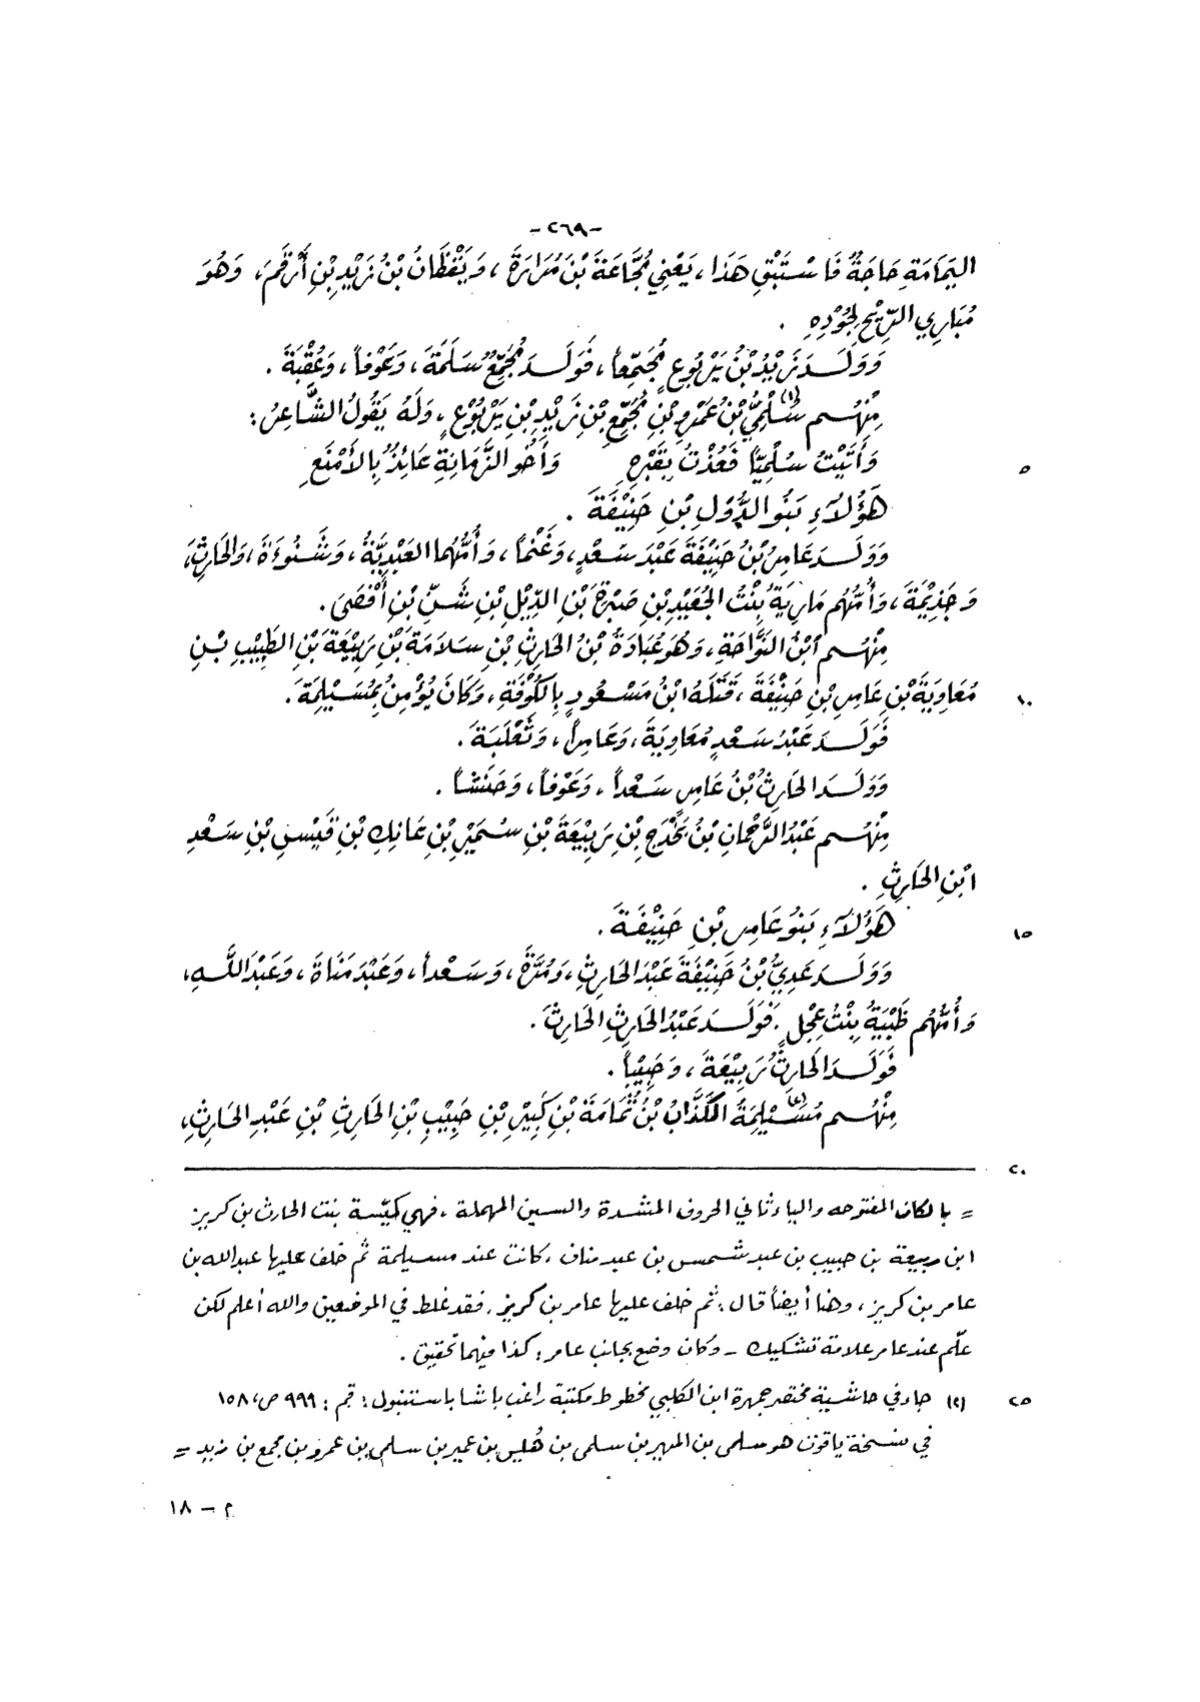 -٢٦٩-
اليَمَامَةِ حَاجَةٌ فَاسْتَبْقِ هَذَا، يَعْنِي مُجَّاعَةَ بْنَ مُرَارَةَ، وَيَقْظَانُ بْنُ زَيْدِ بْنِ أَرْقَمَ، وَهُوَ
مُبَارِي الرِّيْحِ لِجُوْدِهِ .
وَوَلَـدَ زَيْدُ بْنُ يَرْبُوعٍ مُجَمِّعاً، فَوَلَـدَ مُجَمِّعٌ سَلَمَةَ، وَعَوْفاً، وَعُقْبَةَ .
مِنْهُـم سُلْمِيُّ(١) بْنُ عَمْرِو بْنِ مُجَمِّعِ بْنِ زَيْدِ بْنِ يَرْبُوْعٍ، وَلَهُ يَقُولُ الشَّاعِرُ:
وَأَتَيْتُ سُلْمِيّاً فَعُذْتُ بِقَبْرِهِ وَأَخُو الزَّمَانَةِ عَائِذٌ بِالأَمْنَعِ ٥
هَؤُلَاَءِ بَنُو الدُّوَلِ بْنِ حَنِيْفَةَ .
وَوَلَـدَ عَامِرُ بْنُ حَنِيْفَةَ عَبْدَ سَعْدٍ، وَغَنْماً، وَأُمُّهُما العَبْدِيَّةُ، وَشَـنُوءَةَ، وَالحَارِثَ،
وَجَذِيْمَةَ، وَأُمُّهُم مَارِيَةُ بِنْتُ الجُعَيْدِ بْنِ صَبْرَةَ بْنِ الدِّيْلِ بْنِ شَـنِّ بْنِ أَفْصَى .
مِنْهُـم ابْنُ النَّوَّاحَةِ، وَهُوَ عُبَادَةُ بْنُ الحَارِثِ بْنِ سَلَامَةَ بْنِ رَبِيْعَةَ بْنِ الطَّبِيْبِ بْـنِ
مُعَاوِيَةَ بْنِ عَامِرِ بْنِ حَنِيْفَةَ، قَتَلَهُ ابْنُ مَسْعُودٍ بِالكُوْفَةِ، وَكَانَ يُؤْمِنُ بِمُسَيْلِمَةَ . ١٠
فَوَلَـدَ عَبْدُ سَعْدٍ مُعَاوِيَةَ، وَعَامِراً، وَثَعْلَبَةَ .
وَوَلَـدَ الحَارِثُ بْنُ عَامِرٍ سَعْداً، وَعَوْفاً، وَحَنَشاً .
مِنْهُـم عَبْدُ الرَّحْمَانِ بْنُ بَحْدَجِ بْنِ رَبِيْعَةَ بْنِ سُمَيْرِ بْنِ عَاتِكِ بْنِ قَيْسِ بْنِ سَعْدِ
ابْنِ الحَارِثِ .
هَؤُلَاَءِ بَنُو عَامِرِ بْنِ حَنِيْفَةَ . ١٥
وَوَلَـدَ عَدِيُّ بْنُ حَنِيْفَةَ عَبْدَ الحَارِثِ، وَمُرَّةَ، وَسَعْداً، وَعَبْدَ مَنَاةَ، وَعَبْدَ اللَّـهِ،
وَأُمُّهُم ظَبْيَةُ بِنْتُ عِجْلٍ. فَوَلَـدَ عَبْدُ الحَارِثِ الحَارِثَ .
فَوَلَـدَ الحَارِثُ رَبِيْعَةَ، وَحَبِيْباً .
مِنْهُـم مُسَيْلِمَةُ(٢) الكَذَّابُ بْنُ ثُمَامَةَ بْنِ كَبِيْرِ بْنِ حَبِيْبِ بْنِ الحَارِثِ بْنِ عَبْدِ الحَارِثِ،
٢٠
= بالكاف المفتوحه والياء ثاني الحروف المشددة والسين المهملة، فهي كيّسة بنت الحارث بن كريز
ابن ربيعة بن حبيب بن عبد شمس بن عبد مناف، كانت عند مسيلمة ثم خلف عليها عبدالله بن
عامر بن كريز، وهنا أيضاً قال: ثم خلف عليها عامر بن كريز، فقد غلط في الموضعين والله أعلم لكن
علّم عند عامر علامة تشكيك - وكان وضع بجانب عامر: كذا فيهما تحقيق .
(١) جاء في حاشية مختصر جمهرة ابن الكلبي مخطوط مكتبة راغب باشا باستنبول: قم: ٩٩٩ ص، ١٥٨ ٢٥
في نسخة ياقوت هو سلمى بن المهير بن سلمى بن هُليس بن عمير بن سلمى بن عمرو بن مجمع بن زيد =
م - ١٨